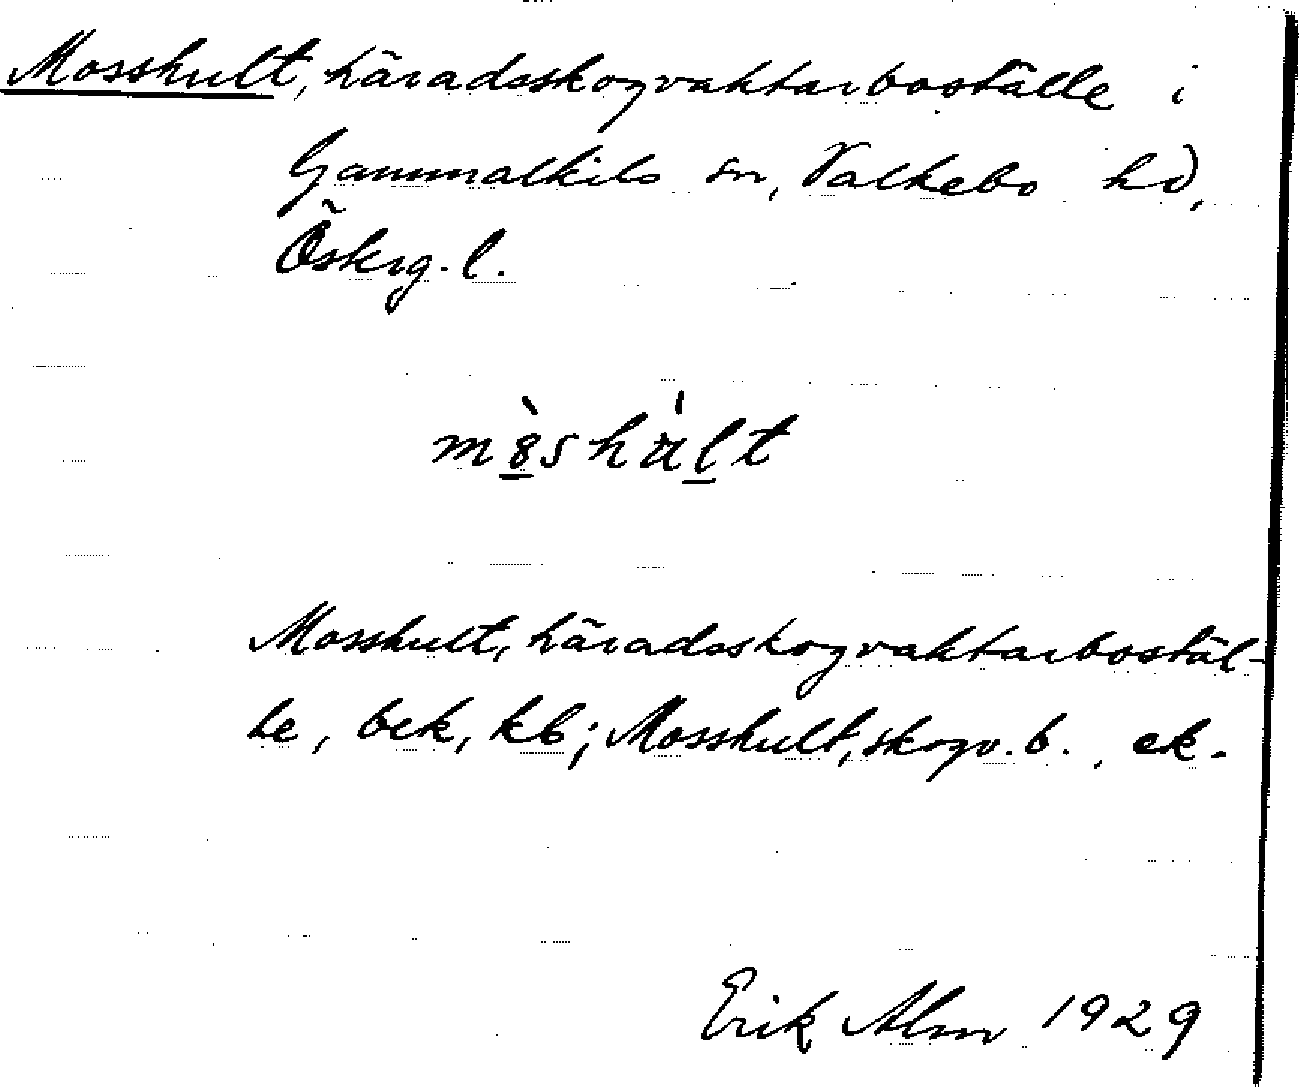 Mosshult, häradsskogvaktarboställe i
Gammalkils sn, Valkebo hd,
Öskrg. l.
Mosshult, häradsskogvaktarbostäl-
le, bek, kb; Mosshult, skogv. b., ek.
Erik Alm 1929